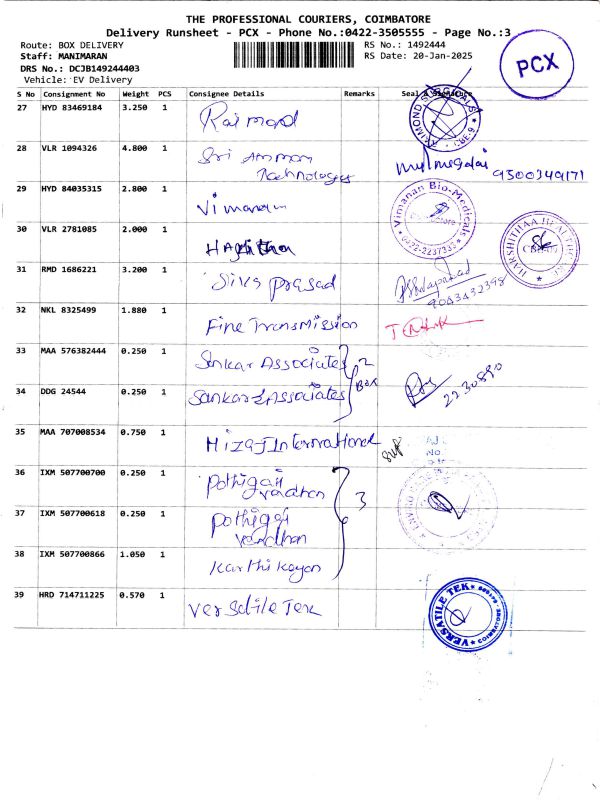 THE PROFESSIONAL COURIERS, COIMBATORE
Delivery Runsheet - PCX - Phone No.:0422-3505555 - Page No.:3
Route: BOX DELIVERY
RS No.: 1492444
Staff: MANIMARAN
RS Date: 20-Jan-2025
DRS No.: DCJB149244403
Vehicle: EV Delivery
PCX
S No Consignment No Weight PCS Consignee Details Remarks Seal & Signature
27 HYD 83469184 3.250 1 Raimond
28 VLR 1094326 4.800 1 Sri Amman
Technologies
9500349171
29 HYD 84035315 2.800 1
Vimanan Bio-Medicals
0422-2237335
30 VLR 2781085 2.000 1
31 RMD 1686221 3.200 1 Siva prasad
9043432398
32 NKL 8325499 1.880 1 Fine Transmission
33 MAA 576382444 0.250 1 Sankar Associates 2
BOX
34 DDG 24544 0.250 1 Sankar Associates
2230890
35 MAA 707008534 0.750 1 Hizaj International
36 IXM 507700700 0.250 1 Pothigai
vardhan
3
37 IXM 507700618 0.250 1 Pothigai
vardhan
38 IXM 507700866 1.050 1 Karthikeyan
39 HRD 714711225 0.570 1 Versatile Tek
VERSATILE TEK
COIMBATORE